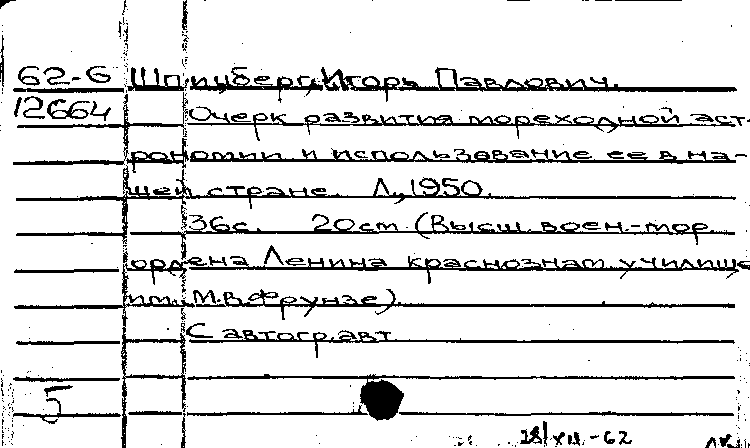 62-6 Шпицберг, Игорь Павлович.
12664 Очерк развития мореходной аст-
рономии и использование ее в на-
шей стране. Л., 1950.
36с. 20см. (Высш. воен.-мор.
ордена Ленина краснознам. училище
им. М.В.Фрунзе)
С автогр. авт.
5
18/XII-62